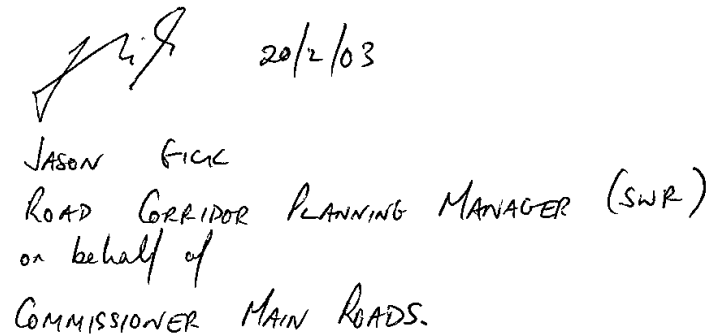 20/2/03
JASON GICK
ROAD CORRIDOR PLANNING MANAGER (SWR)
on behalf of
COMMISSIONER MAIN ROADS.